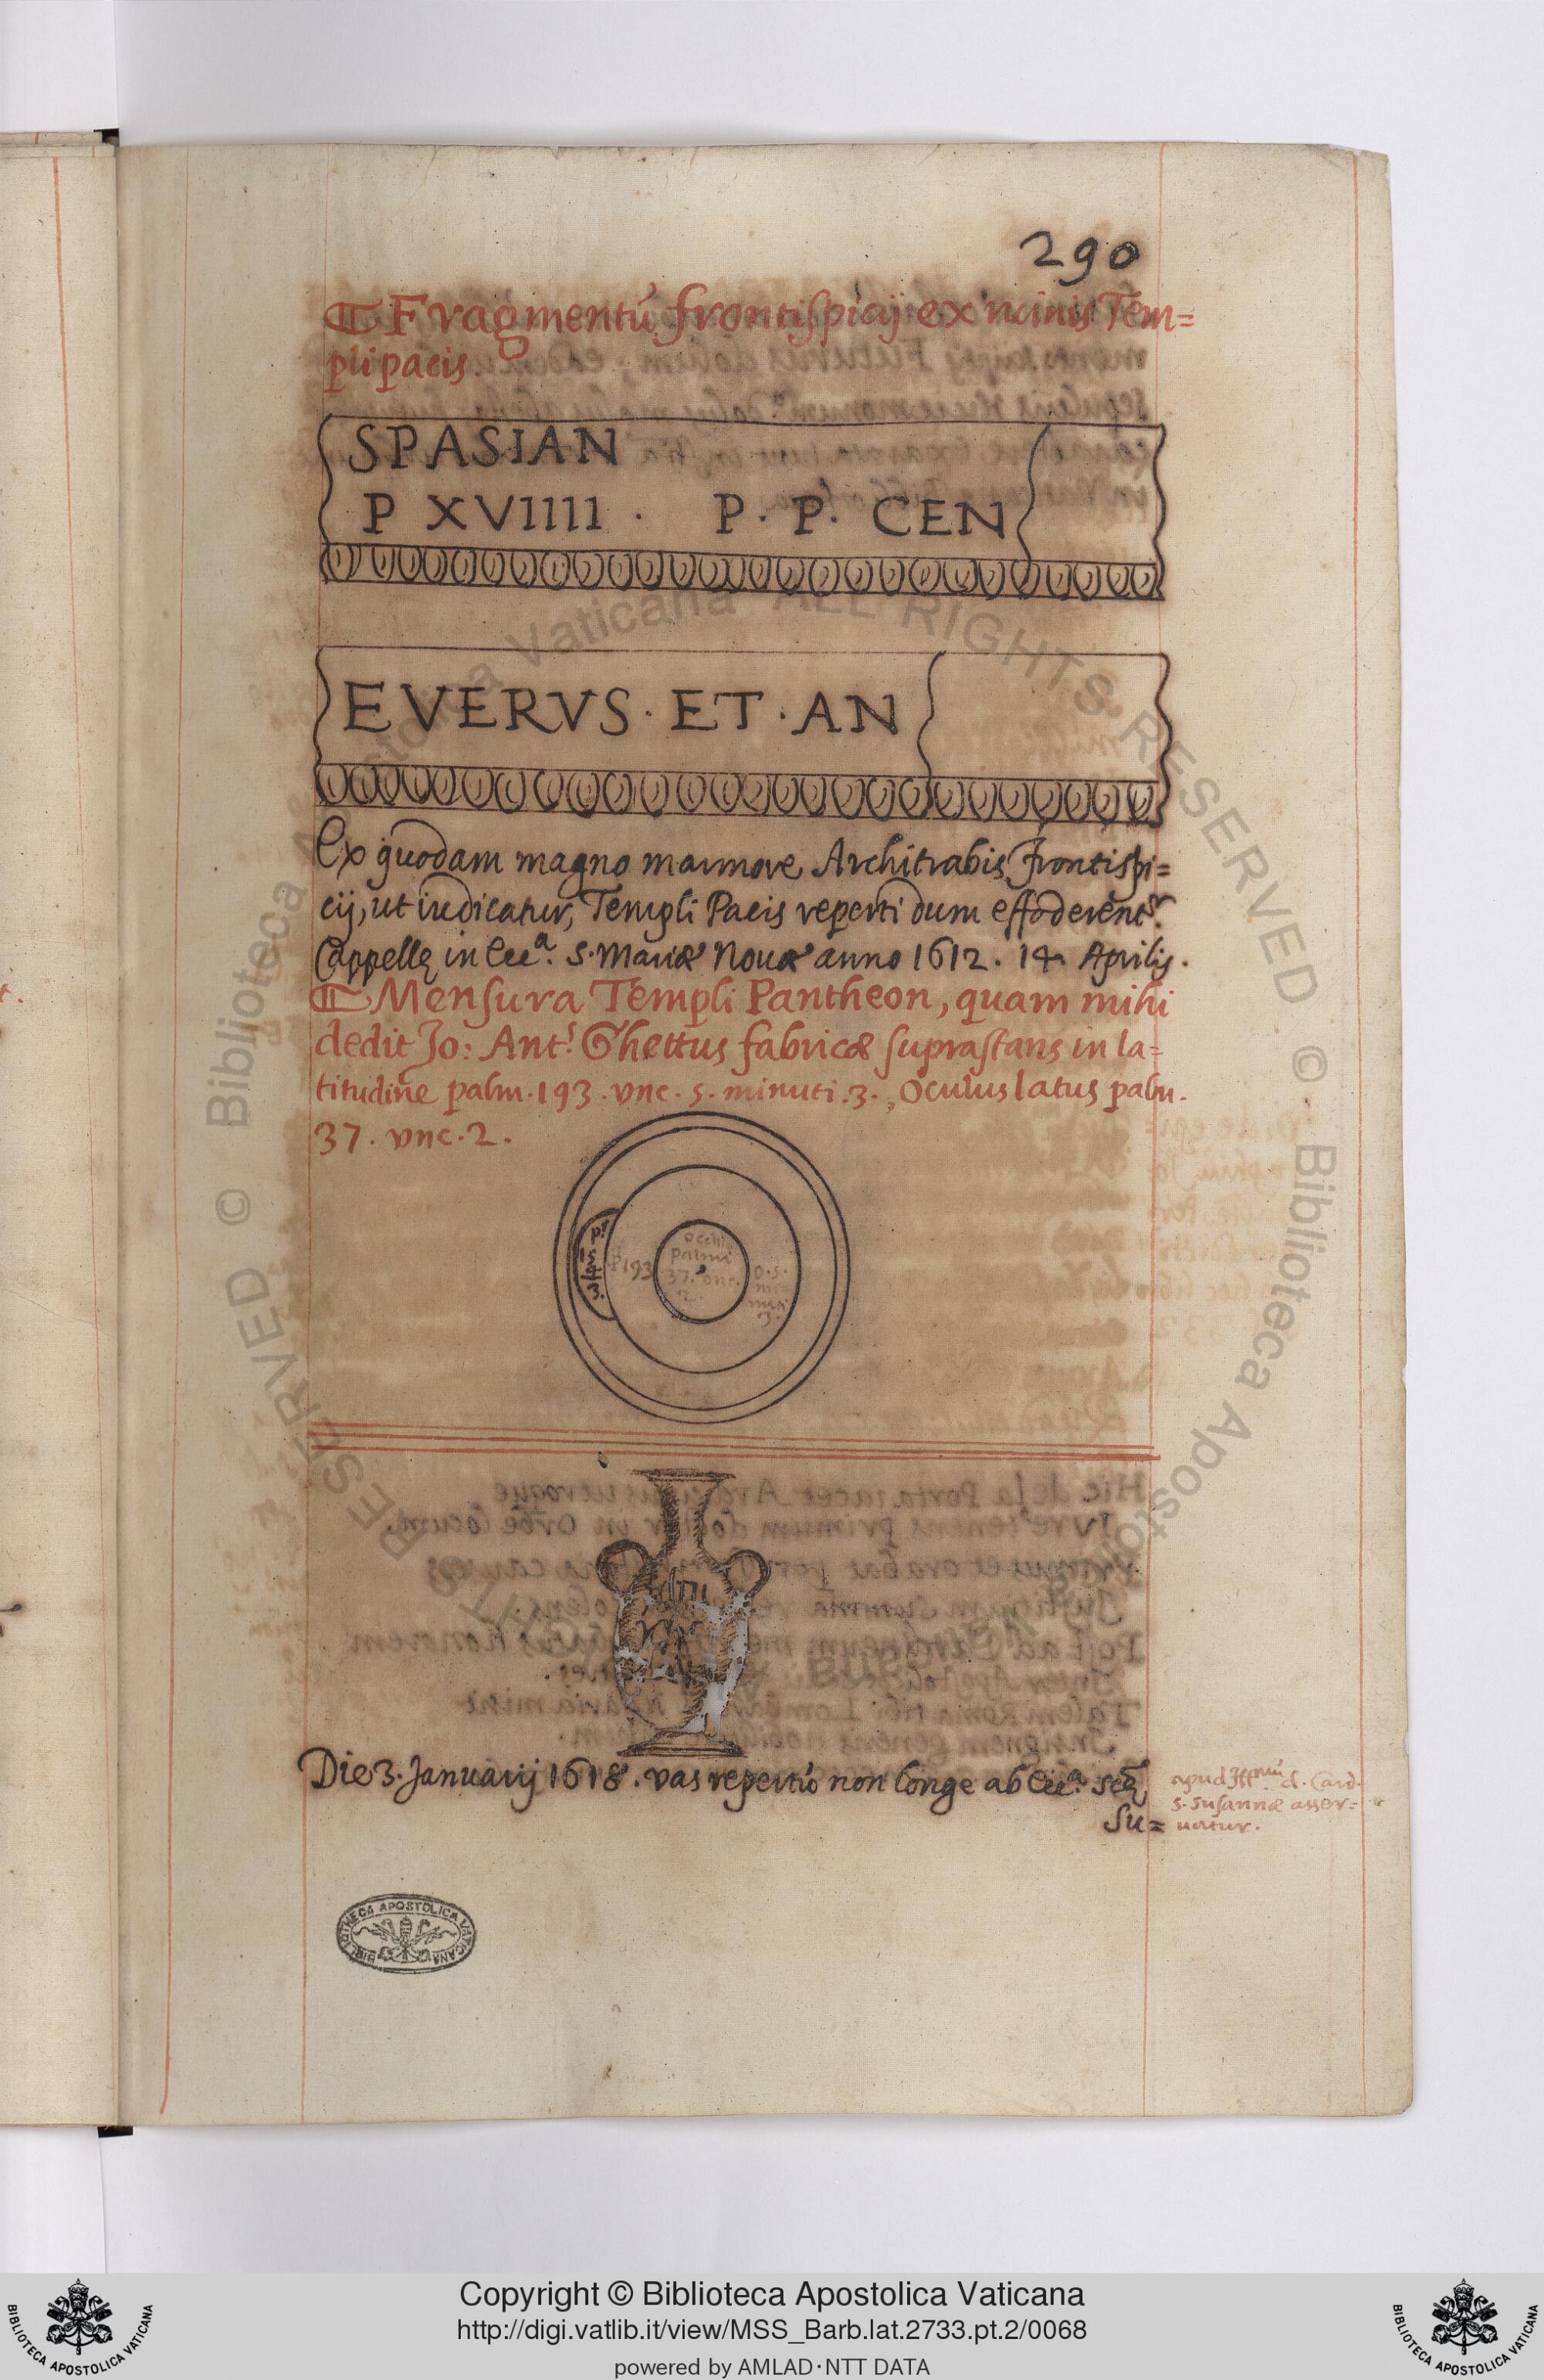 290
Fragmentũ frontispicij ex ruinis Tem=
pli pacis.
SPASIAN
P XVIIII · P · P · CEN
EVERVS · ET · AN
Ex quodam magno marmore Architrabis, frontispi=
cij, ut indicatur, Templi Pacis reperti dum effoderẽntʳ
Cappellę in Eccᵃ. S. Mariæ Nouæ anno 1612. 14 Aprilis.
Mensura Templi Pantheon, quam mihi
dedit Jo: Antˢ. Ghettus fabricæ suprastans in la=
titudine palm. 193. vnc. 5. minuti. 3., Oculus latus palm.
37. vnc. 2.
occhi
palmi
37. onc.
2.
P 193
o. 5.
mi
nuti
3.
Die 3. Januarij 1618. vas repertũ non longe ab Eccᵃ. Scę
Su=
apud Illᵐᵘ d. Card.
S. Susannæ asser=
uatur.
BIBLIOTHECA APOSTOLICA VATICANA
© Biblioteca Apostolica Vaticana ALL RIGHTS RESERVED
Copyright © Biblioteca Apostolica Vaticana
http://digi.vatlib.it/view/MSS_Barb.lat.2733.pt.2/0068
powered by AMLAD·NTT DATA
BIBLIOTECA APOSTOLICA VATICANA
BIBLIOTECA APOSTOLICA VATICANA